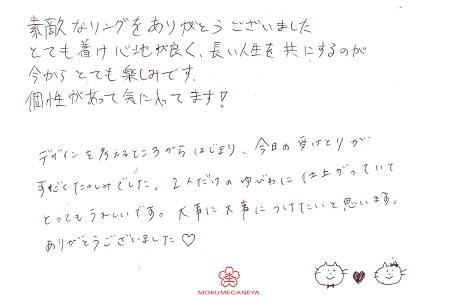 素敵なリングをありがとうございました
とても着け心地が良く、長い人生を共にするのが
今からとても楽しみです.
個性があって気に入ってます!
デザインを考えるところからはじまり、今日の受けとりが
すごくたのしみでした。2人だけのゆびわに仕上がっていて
とってもうれしいです。大事に大事につけたいと思います。
ありがとうございました♡
MOKUMEGANEYA